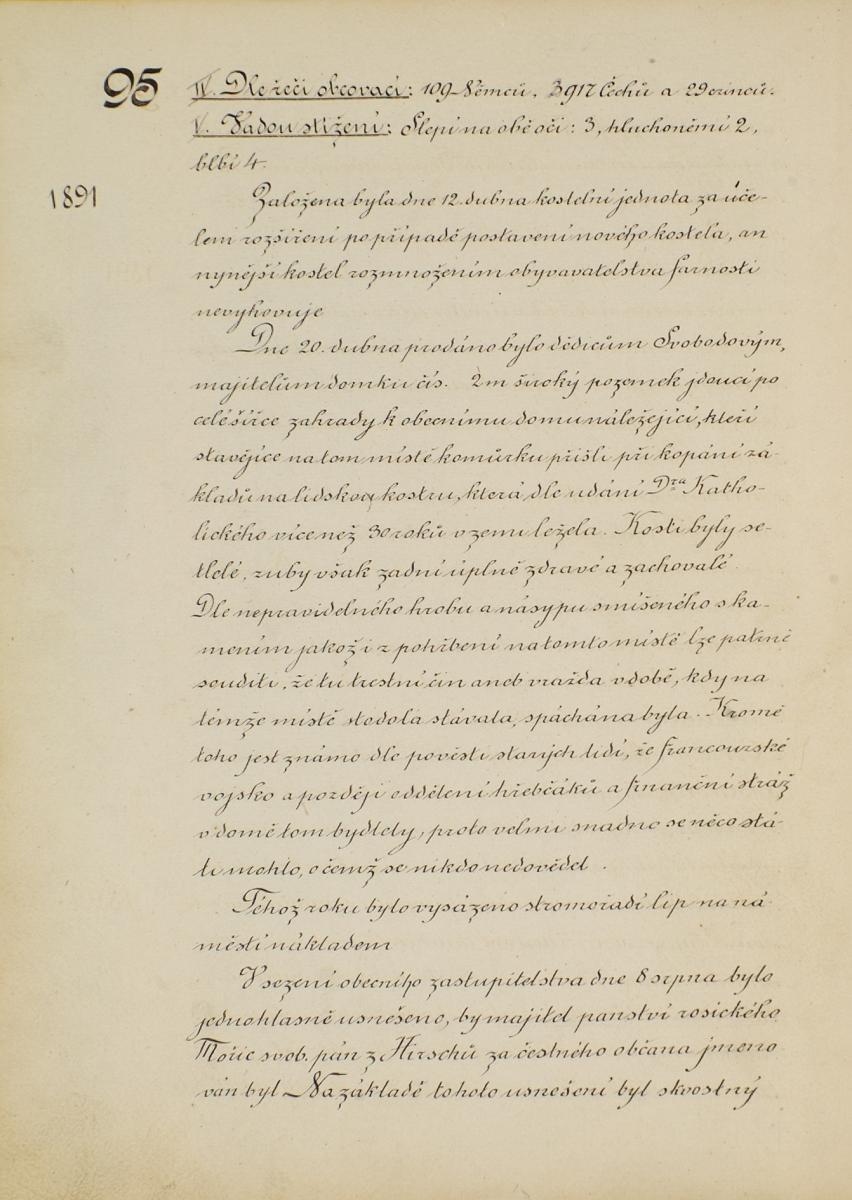 95
IV. Dle řeči obcovací: 109 Němců, 3917 Čechů a 29 cizinců.
V. Vadou stižení: Slepí na obě oči: 3, hluchoněmí 2,
blbí 4.
1891
Založena byla dne 12. dubna kostelní jednota za úče-
lem rozšíření po případě postavení nového kostela, an
nynější kostel rozmnožením obyvavatelstva farnosti
nevyhovuje
Dne 20. dubna prodáno bylo dědicům Svobodovým,
majitelům domku čís. 2m široký pozemek jdoucí po
celé šířce zahrady k obecnímu domu náležející, kteří
stavějíce na tom místě komůrku přišli při kopání zá-
kladů na lidskou kostru, která dle udání Dra Katho-
lického více než 30 roků v zemi ležela. Kosti byly se-
tlelé, zuby však zadní úplně zdravé a zachovalé.
Dle nepravidelného hrobu a násypu smíšeného s ka-
mením jakož i z pohřbení na tomto místě lze patrně
souditi, že tu trestní čin aneb vražda v době, kdy na
témže místě stodola stávala, spáchána byla. Kromě
toho jest známo dle pověsti starých lidí, že francouzské
vojsko a později oddělení hřebčáků a finanční stráž
v domě tom bydlely, proto velmi snadno se něco stá-
ti mohlo, o čemž se nikdo nedověděl.
Téhož roku bylo vysázeno stromořadí lip na ná-
městí nákladem
V sezení obecního zastupitelstva dne 8 srpna bylo
jednohlasně usnešeno, by majitel panství rosického
Mořic svob. pán z Hirschů za čestného občana jmeno
ván byl Na základě tohoto usnešení byl skvostný